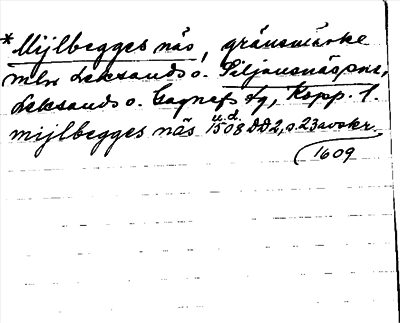 *Mijlbegges näs, gränsmärke
mln Leksands o. Siljansnäs pnr,
Leksands o. Gagnefs tg, Kopp. l.
mijlbegges näs u.d. 1508 DD2, s. 23 avskr.
1609